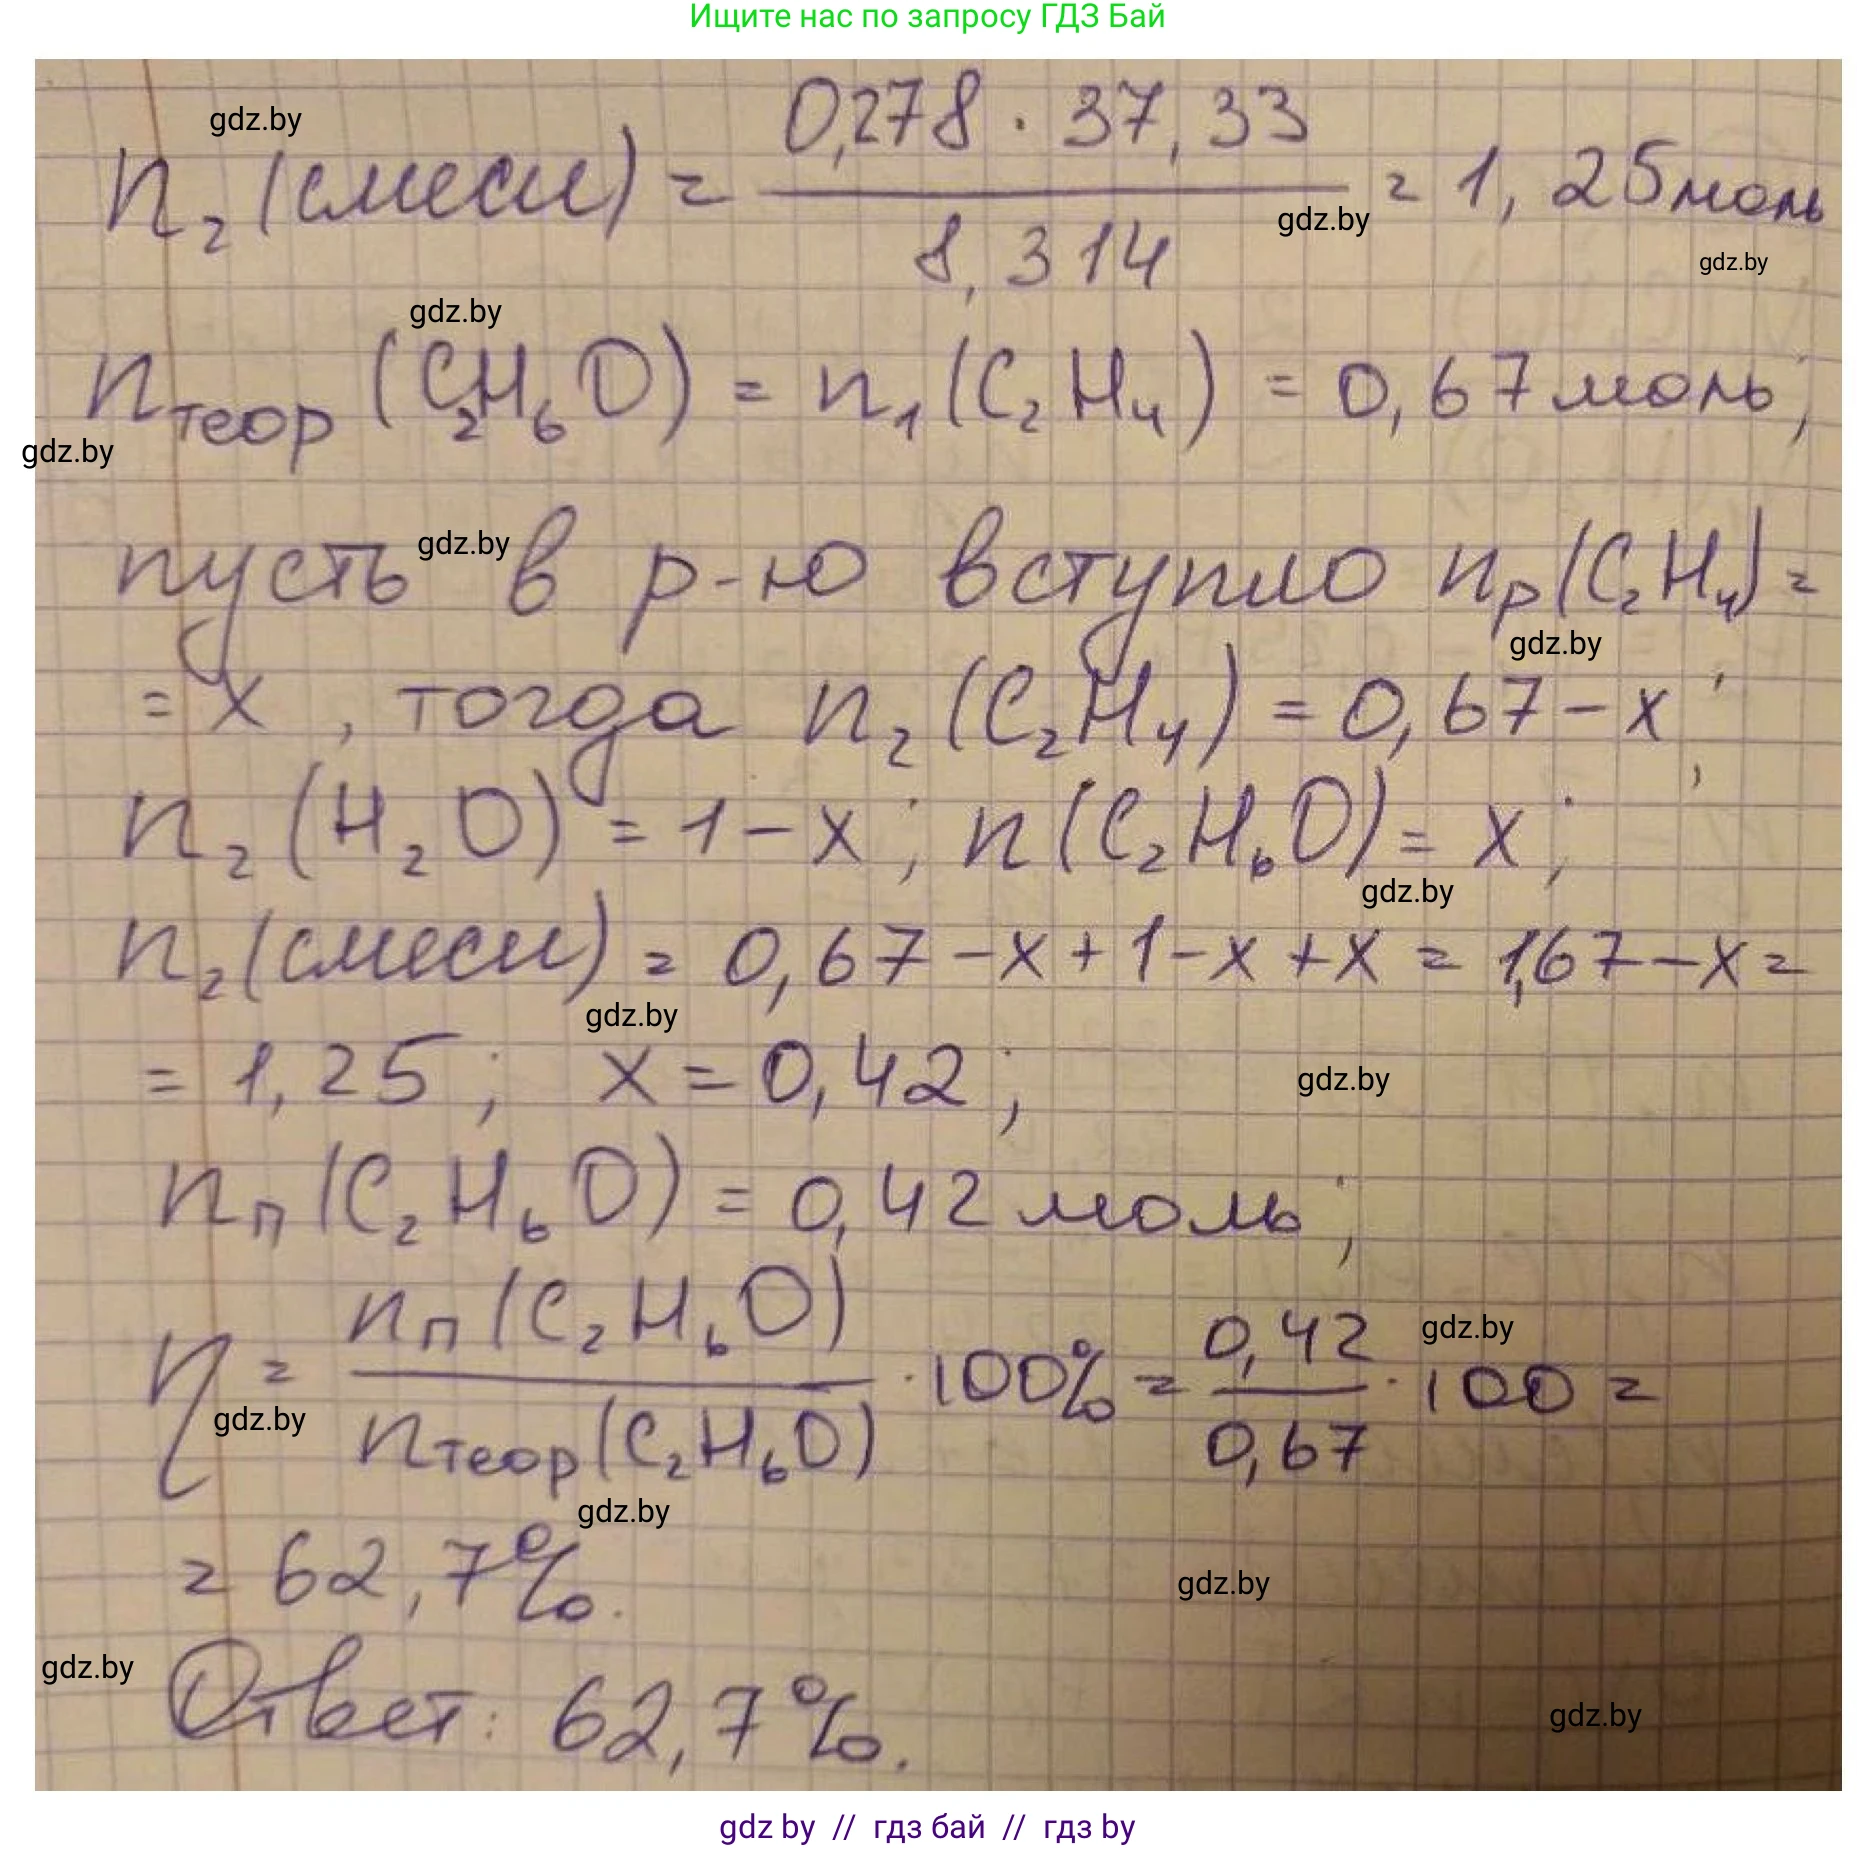 Ищите нас по запросу ГДЗ Бай
gdz.by
n₂(смеси) = (0,278 · 37,33) / 8,314 = 1,25 моль
gdz.by
gdz.by
gdz.by
nтеор(C₂H₆O) = n₁(C₂H₄) = 0,67 моль;
gdz.by
пусть в р-ю вступло nр(C₂H₄) =
gdz.by
gdz.by
= x, тогда n₂(C₂H₄) = 0,67 - x;
n₂(H₂O) = 1 - x; n(C₂H₆O) = x;
gdz.by
n₂(смеси) = 0,67 - x + 1 - x + x = 1,67 - x =
gdz.by
= 1,25; x = 0,42;
gdz.by
nп(C₂H₆O) = 0,42 моль;
η = nп(C₂H₆O) / nтеор(C₂H₆O) · 100% = 0,42 / 0,67 · 100 =
gdz.by
gdz.by
gdz.by
= 62,7%.
gdz.by
gdz.by
Ответ: 62,7%.
gdz.by
gdz by // гдз бай // гдз by